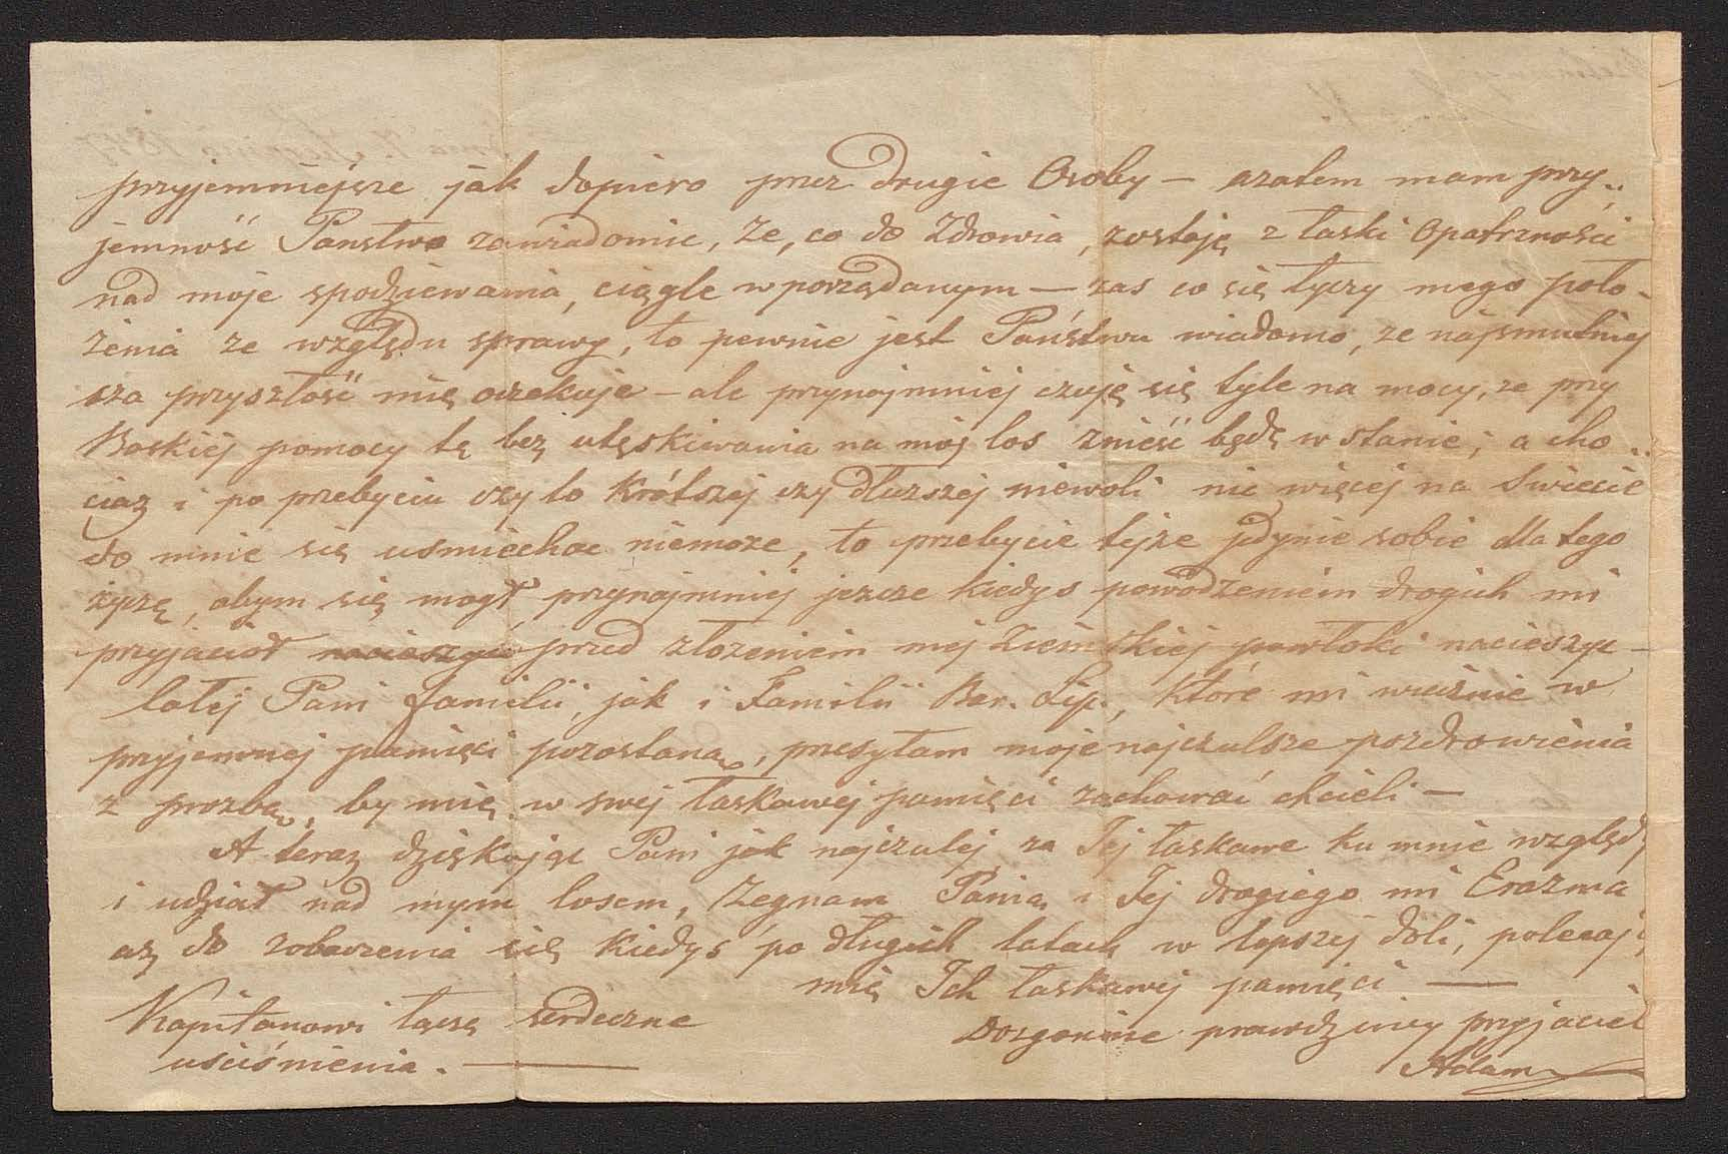 przyjemniejsze jak dopiero przez drugie Osoby — azatem mam przy„
jemność Panstwo zawiadomic, że, co do Zdrowia, zostaję z łaski Opatrzności
nad moje spodziewania, ciągle w porządanym — zas co się tyczy mego poło-
żenia ze względu sprawy, to pewnie jest Państwu wiadomo, ze najsmutniej
sza przyszłość mię oczekuje — ale przynajmniej czuję się tyle na mocy, ze przy
Boskiej pomocy tę bez utęskiwania na mój los znieść będę w stanie; a cho„
ciaz i po przebyciu czy to krótszej czy dłuzszej niewoli nic więcej na Swiecie
do mnie się usmiechac niemoze, to przebycie tejze jedynie sobie dla tego
życzę, abym się mogł przynajmniej jezcze kiedys powodzeniem drogich mi
przyjacioł nacieszyc przed złozeniem mej ziemskiej powłoki nacieszyc —
całej Pani familii, jak i Familii Bar. Lip., które mi wiecznie w
przyjemnej pamięci pozostaną, przesyłam moje najczulsze pozdrowienia
z prozbą, by mię w swej łaskawej pamięci zachować chcieli —
A teraz dziękując Pani jak najczulej za Jej łaskawe ku mnie względy
i udział nad mym losem, żegnam Panią i Jej drogiego mi Erazma
az do zobaczenia się kiedyś po długich latach w lepszej doli, polecając
mię Ich łaskawej pamięci —
Kapitanowi łączę serdeczne
uściśnienia. —
Dozgonnie prawdziwy przyjaciel
Adam